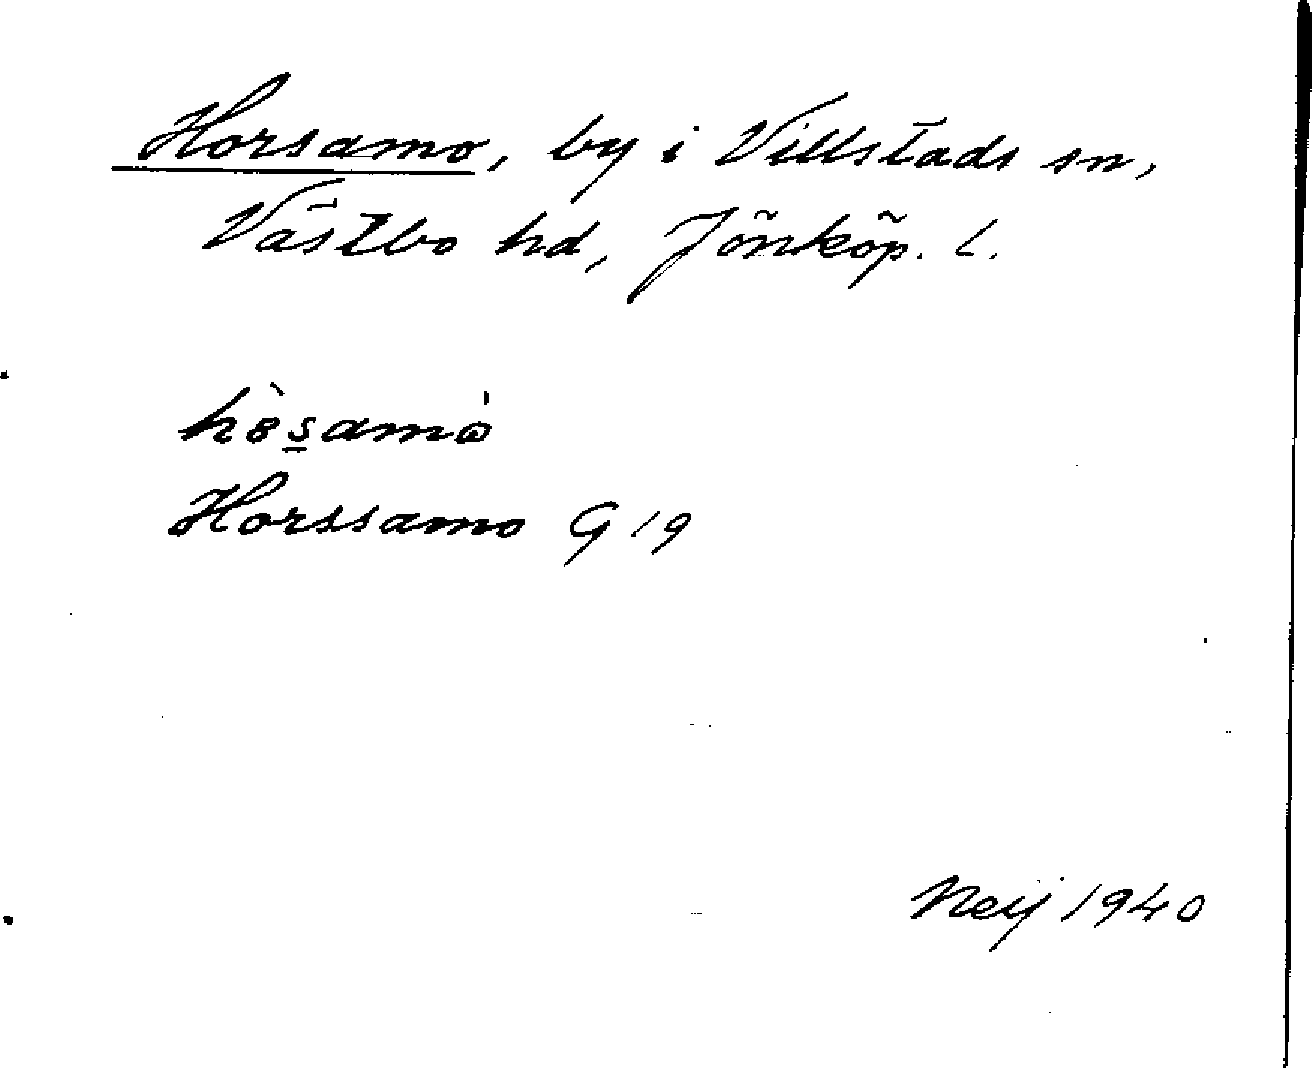 Horsamo, by i Villstads sn,
Västbo hd, Jönköp. l.
Horssamo G 19
Neij 1940